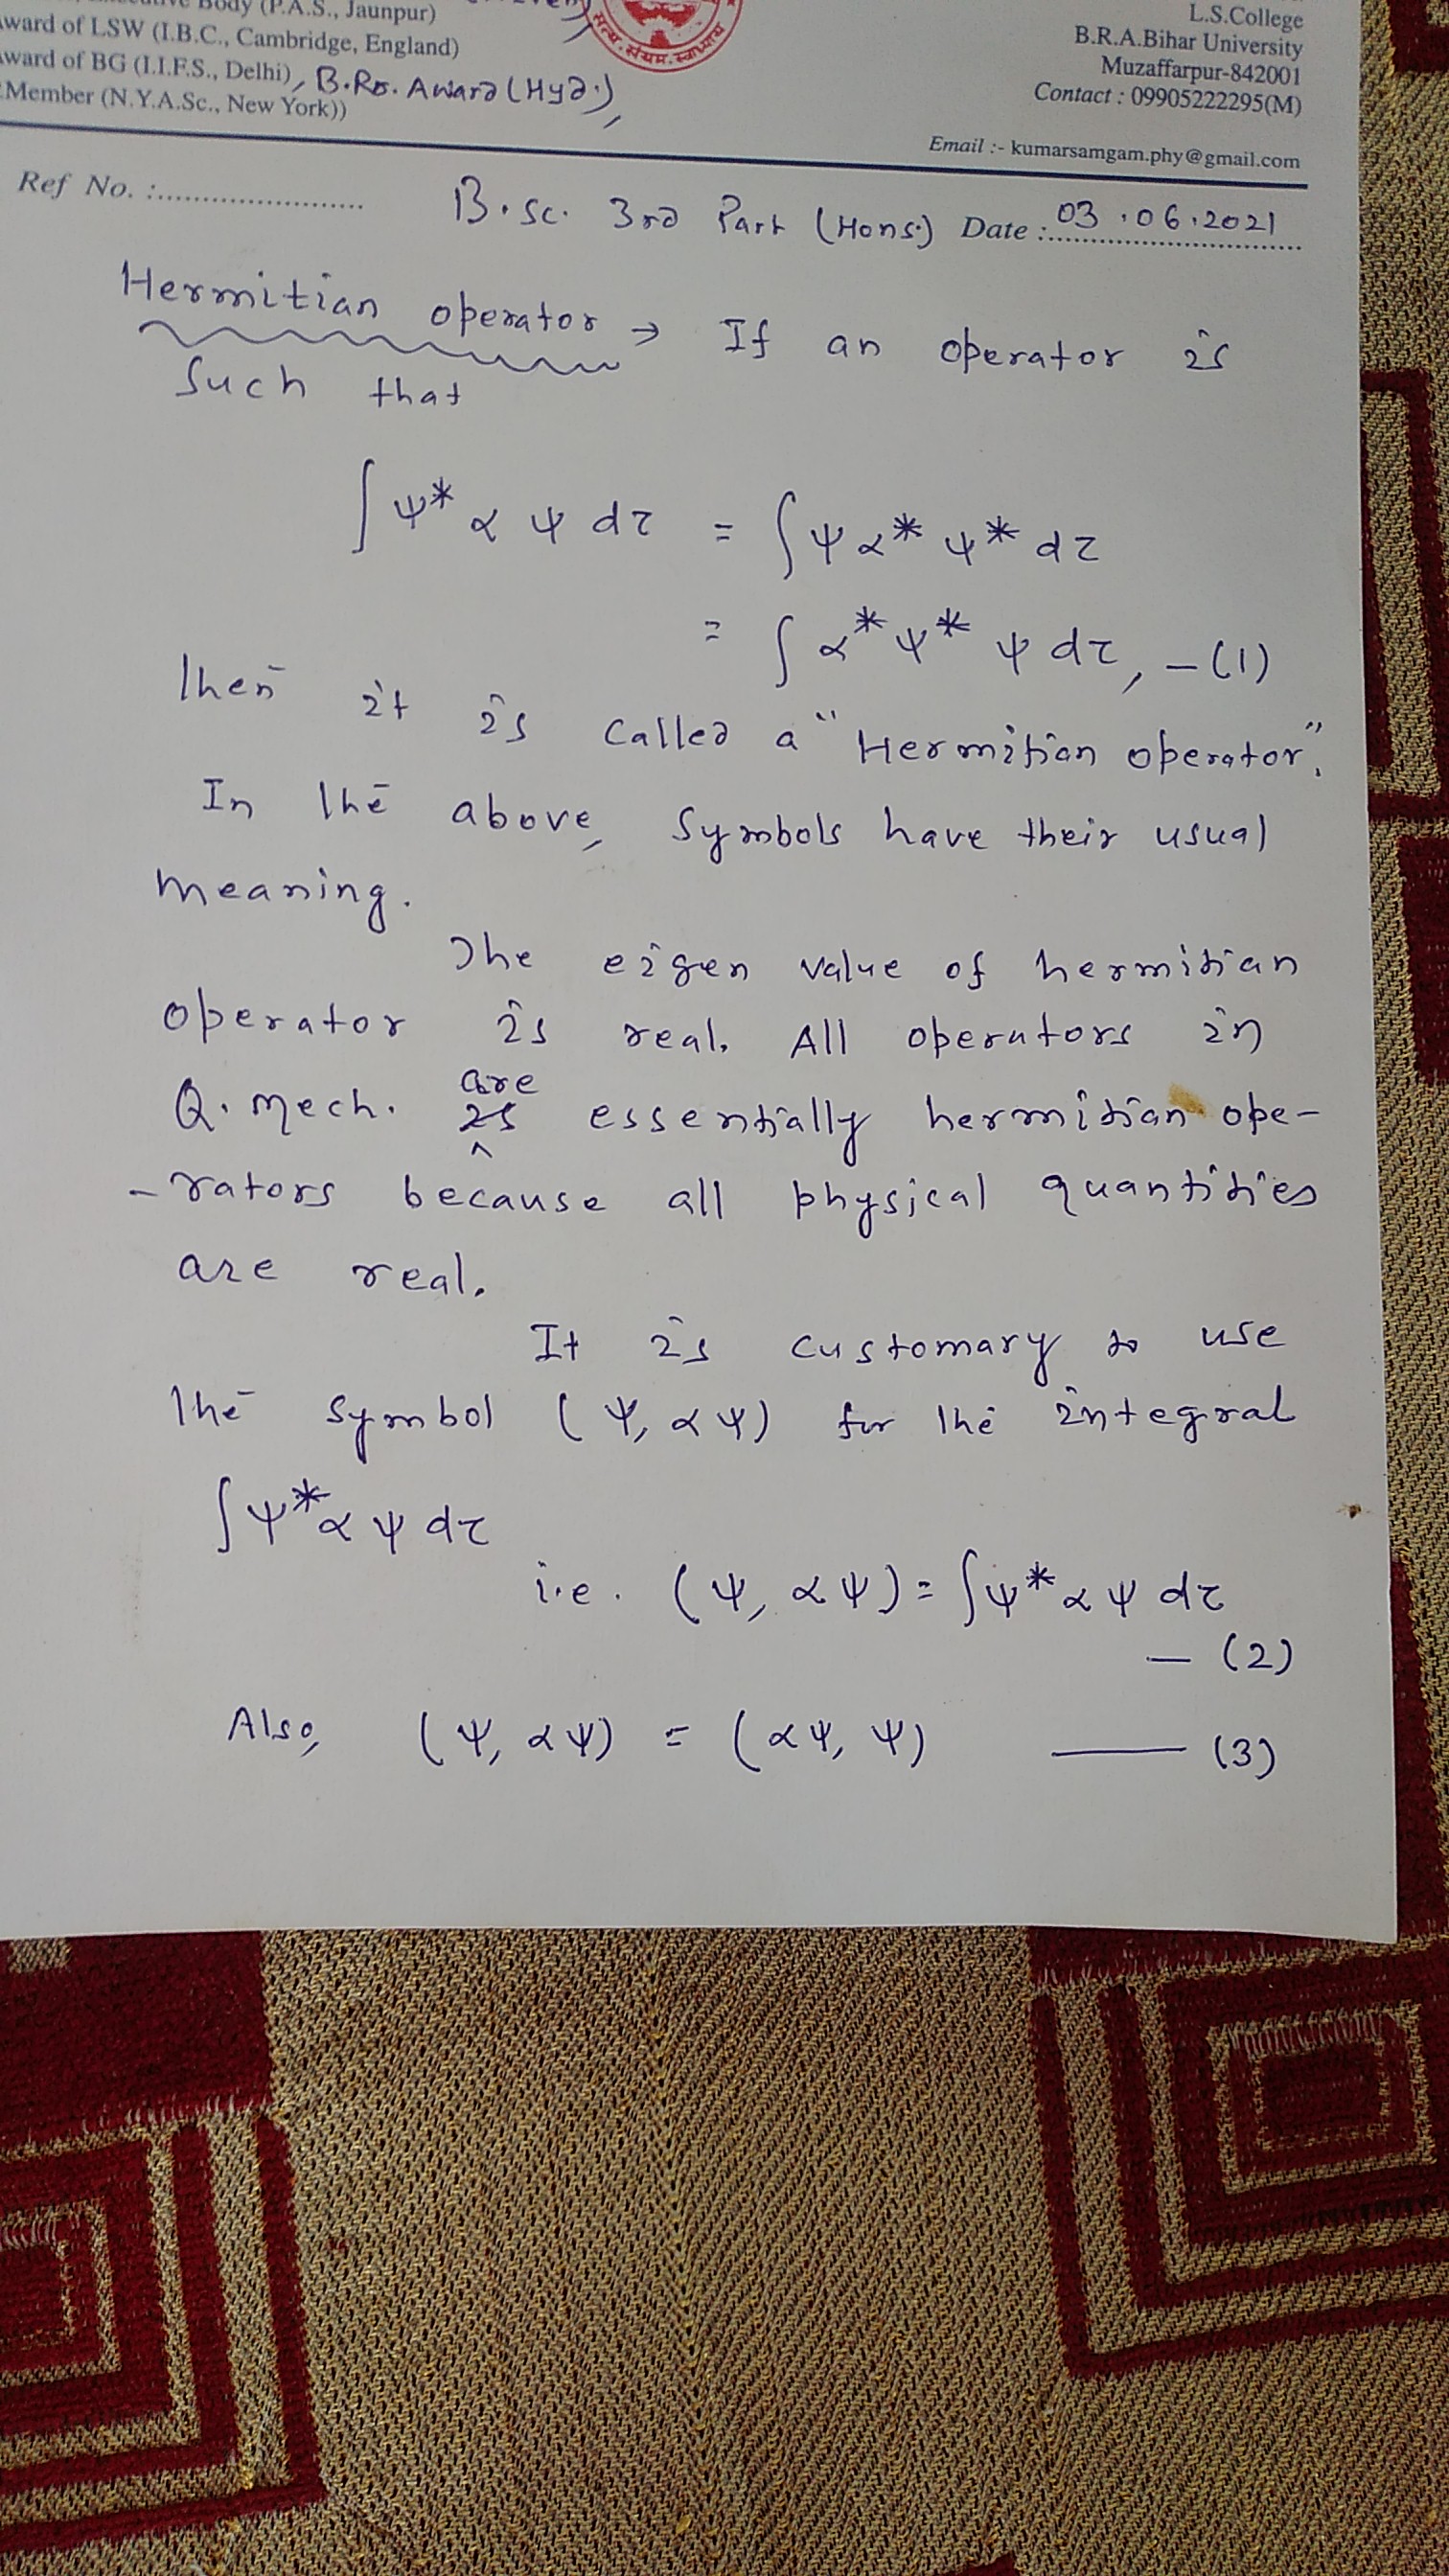 Body (P.A.S., Jaunpur)
ward of LSW (I.B.C., Cambridge, England)
ward of BG (I.I.F.S., Delhi), B.Rs. Award (Hyd.),
Member (N.Y.A.Sc., New York))
सत्य. संयम. स्वाध्याय
L.S.College
B.R.A.Bihar University
Muzaffarpur-842001
Contact : 09905222295(M)
Email :- kumarsamgam.phy@gmail.com
Ref No. :....................... B.Sc. 3rd Part (Hons.) Date :.. 03.06.2021
Hermitian operator → If an operator is
such that
∫ψ* α ψ dτ = ∫ψ α* ψ* dτ
= ∫α* ψ* ψ dτ, –(1)
Then it is called a "Hermitian operator".
In the above, symbols have their usual
meaning.
The eigen value of hermitian
operator is real. All operators in
Q. mech. are essentially hermitian ope-
-rators because all physical quantities
are real.
It is customary to use
the symbol (ψ, αψ) for the integral
∫ψ* α ψ dτ
i.e. (ψ, αψ) = ∫ψ* α ψ dτ
— (2)
Also, (ψ, αψ) = (αψ, ψ) —— (3)